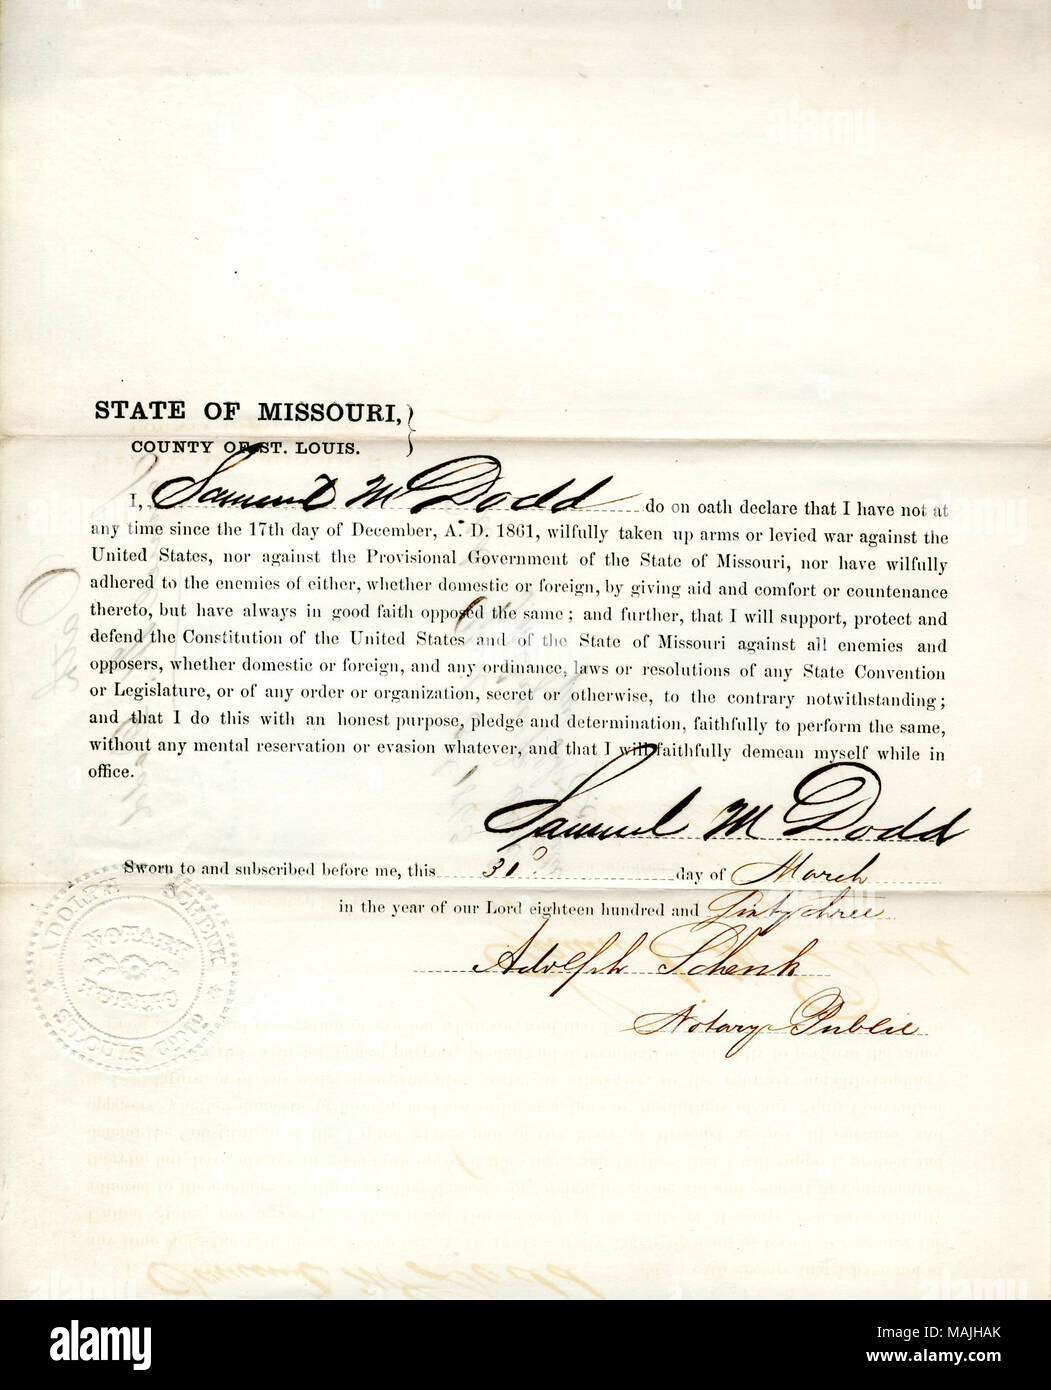 STATE OF MISSOURI,
COUNTY OF ST. LOUIS.
I, Samuel M Dodd do on oath declare that I have not at
any time since the 17th day of December, A. D. 1861, wilfully taken up arms or levied war against the
United States, nor against the Provisional Government of the State of Missouri, nor have wilfully
adhered to the enemies of either, whether domestic or foreign, by giving aid and comfort or countenance
thereto, but have always in good faith opposed the same; and further, that I will support, protect and
defend the Constitution of the United States and of the State of Missouri against all enemies and
opposers, whether domestic or foreign, and any ordinance, laws or resolutions of any State Convention
or Legislature, or of any order or organization, secret or otherwise, to the contrary notwithstanding;
and that I do this with an honest purpose, pledge and determination, faithfully to perform the same,
without any mental reservation or evasion whatever, and that I will faithfully demean myself while in
office.
Samuel M Dodd
Sworn to and subscribed before me, this 31 day of March
in the year of our Lord eighteen hundred and Sixty three
Adolph Schenk
Notary Public
ADOLPH SCHENK
NOTARY
PUBLIC
ST. LOUIS CO. MO.
alamy
Image ID: MAJHAK
www.alamy.com